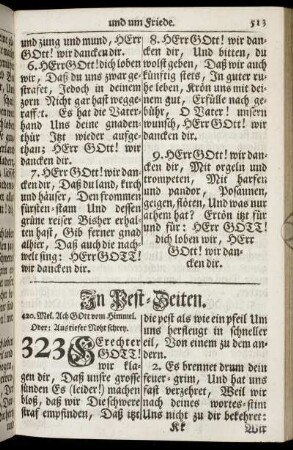 und um Friede. 513
und zung und mund, HErr
GOtt! wir dancken dir.
6. HErr GOtt! dich loben
wir, Daß du uns zwar ge-
strafet, Jedoch in deinem
zorn Nicht gar hast wegge-
raffet. Es hat die Vater-
hand Uns deine gnaden-
thür Itzt wieder aufge-
than: HErr GOtt! wir
dancken dir.
7. HErr GOtt! wir dan-
cken dir, Daß du land, kirch
und häuser, Den frommen
fürsten-stam Und dessen
grüne reiser Bisher erhal-
ten hast, Gib ferner gnad
alhier, Daß auch die nach-
welt sing: HErr GOTT!
wir dancken dir.
8. HErr GOtt! wir dan-
cken dir, Und bitten, du
wolst geben, Daß wir auch
künftig stets, In guter ru-
he leben, Krön uns mit dei-
nem gut, Erfülle nach ge-
bühr, O Vater! unsern
wunsch, HErr GOtt! wir
dancken dir.
9. HErr GOtt! wir dan-
cken dir, Mit orgeln und
trompeten, Mit harfen
und pandor, Posaunen,
geigen, flöten, Und was nur
athem hat? Ertön itzt für
und für: HErr GOTT!
dich loben wir, HErr
GOtt! wir dan-
cken dir.
In Pest-Zeiten.
420. Mel. Ach GOtt vom Himmel.
Oder: Aus tiefer Noht schrey.
323 GErechter
GOTT!
wir kla-
gen dir, Daß unsre grosse
sünden Es (leider!) machen
bloß, daß wir Die schwere
straf empfinden, Daß itzt
die pest als wie ein pfeil Um
uns herflengt in schneller
eil, Von einem zu dem an-
dern.
2. Es brennet drum dein
feuer-grim, Und hat uns
fast verzehret, Weil wir
nach deines wortes-stim
Uns nicht zu dir bekehret:
Kk Wir